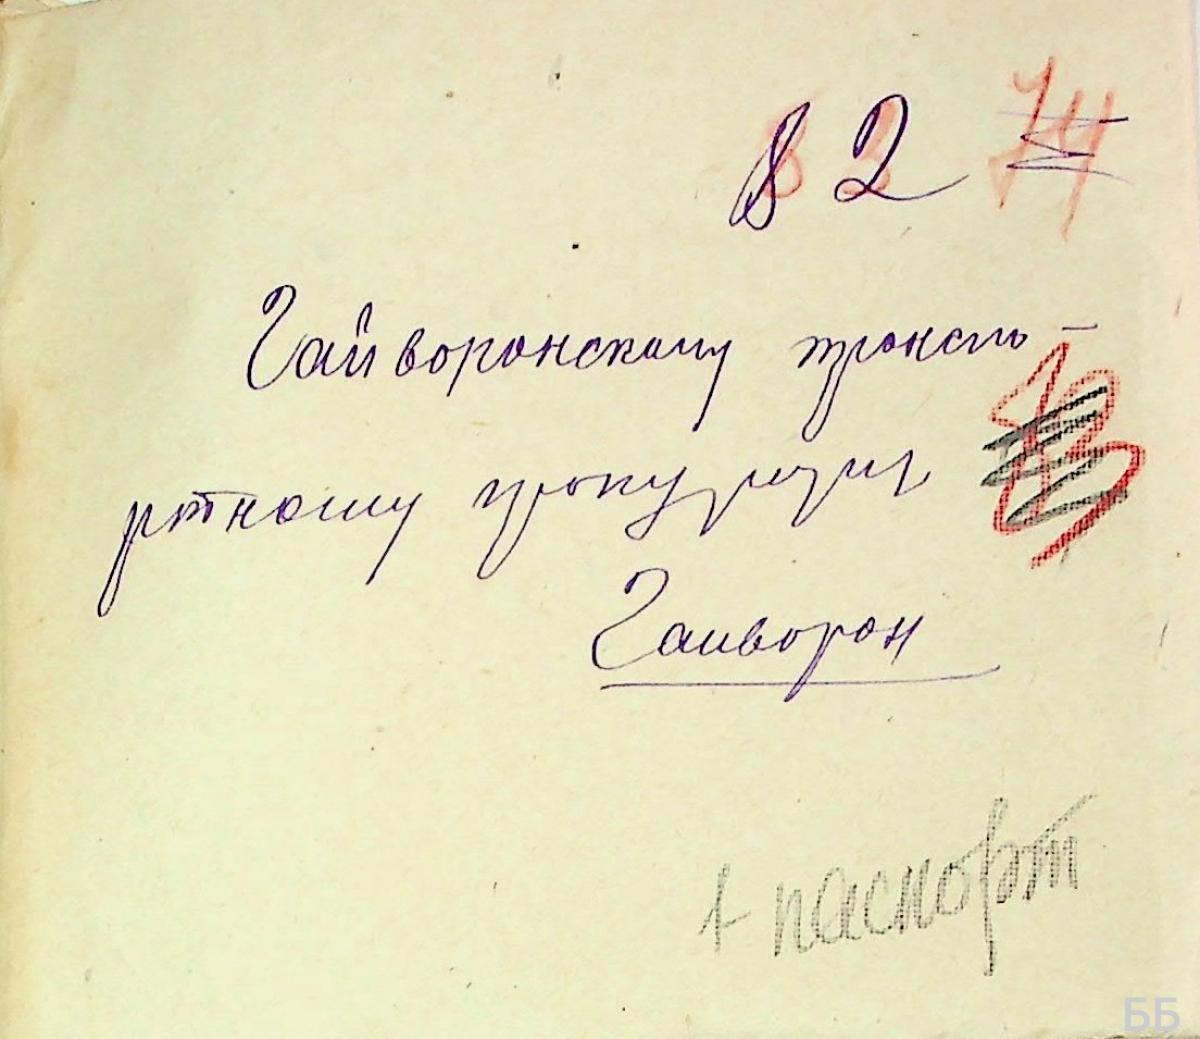 В 2
74
Гайворонскому транспо-
ртному прокурору
Гайворон
+ паспорт
ББ